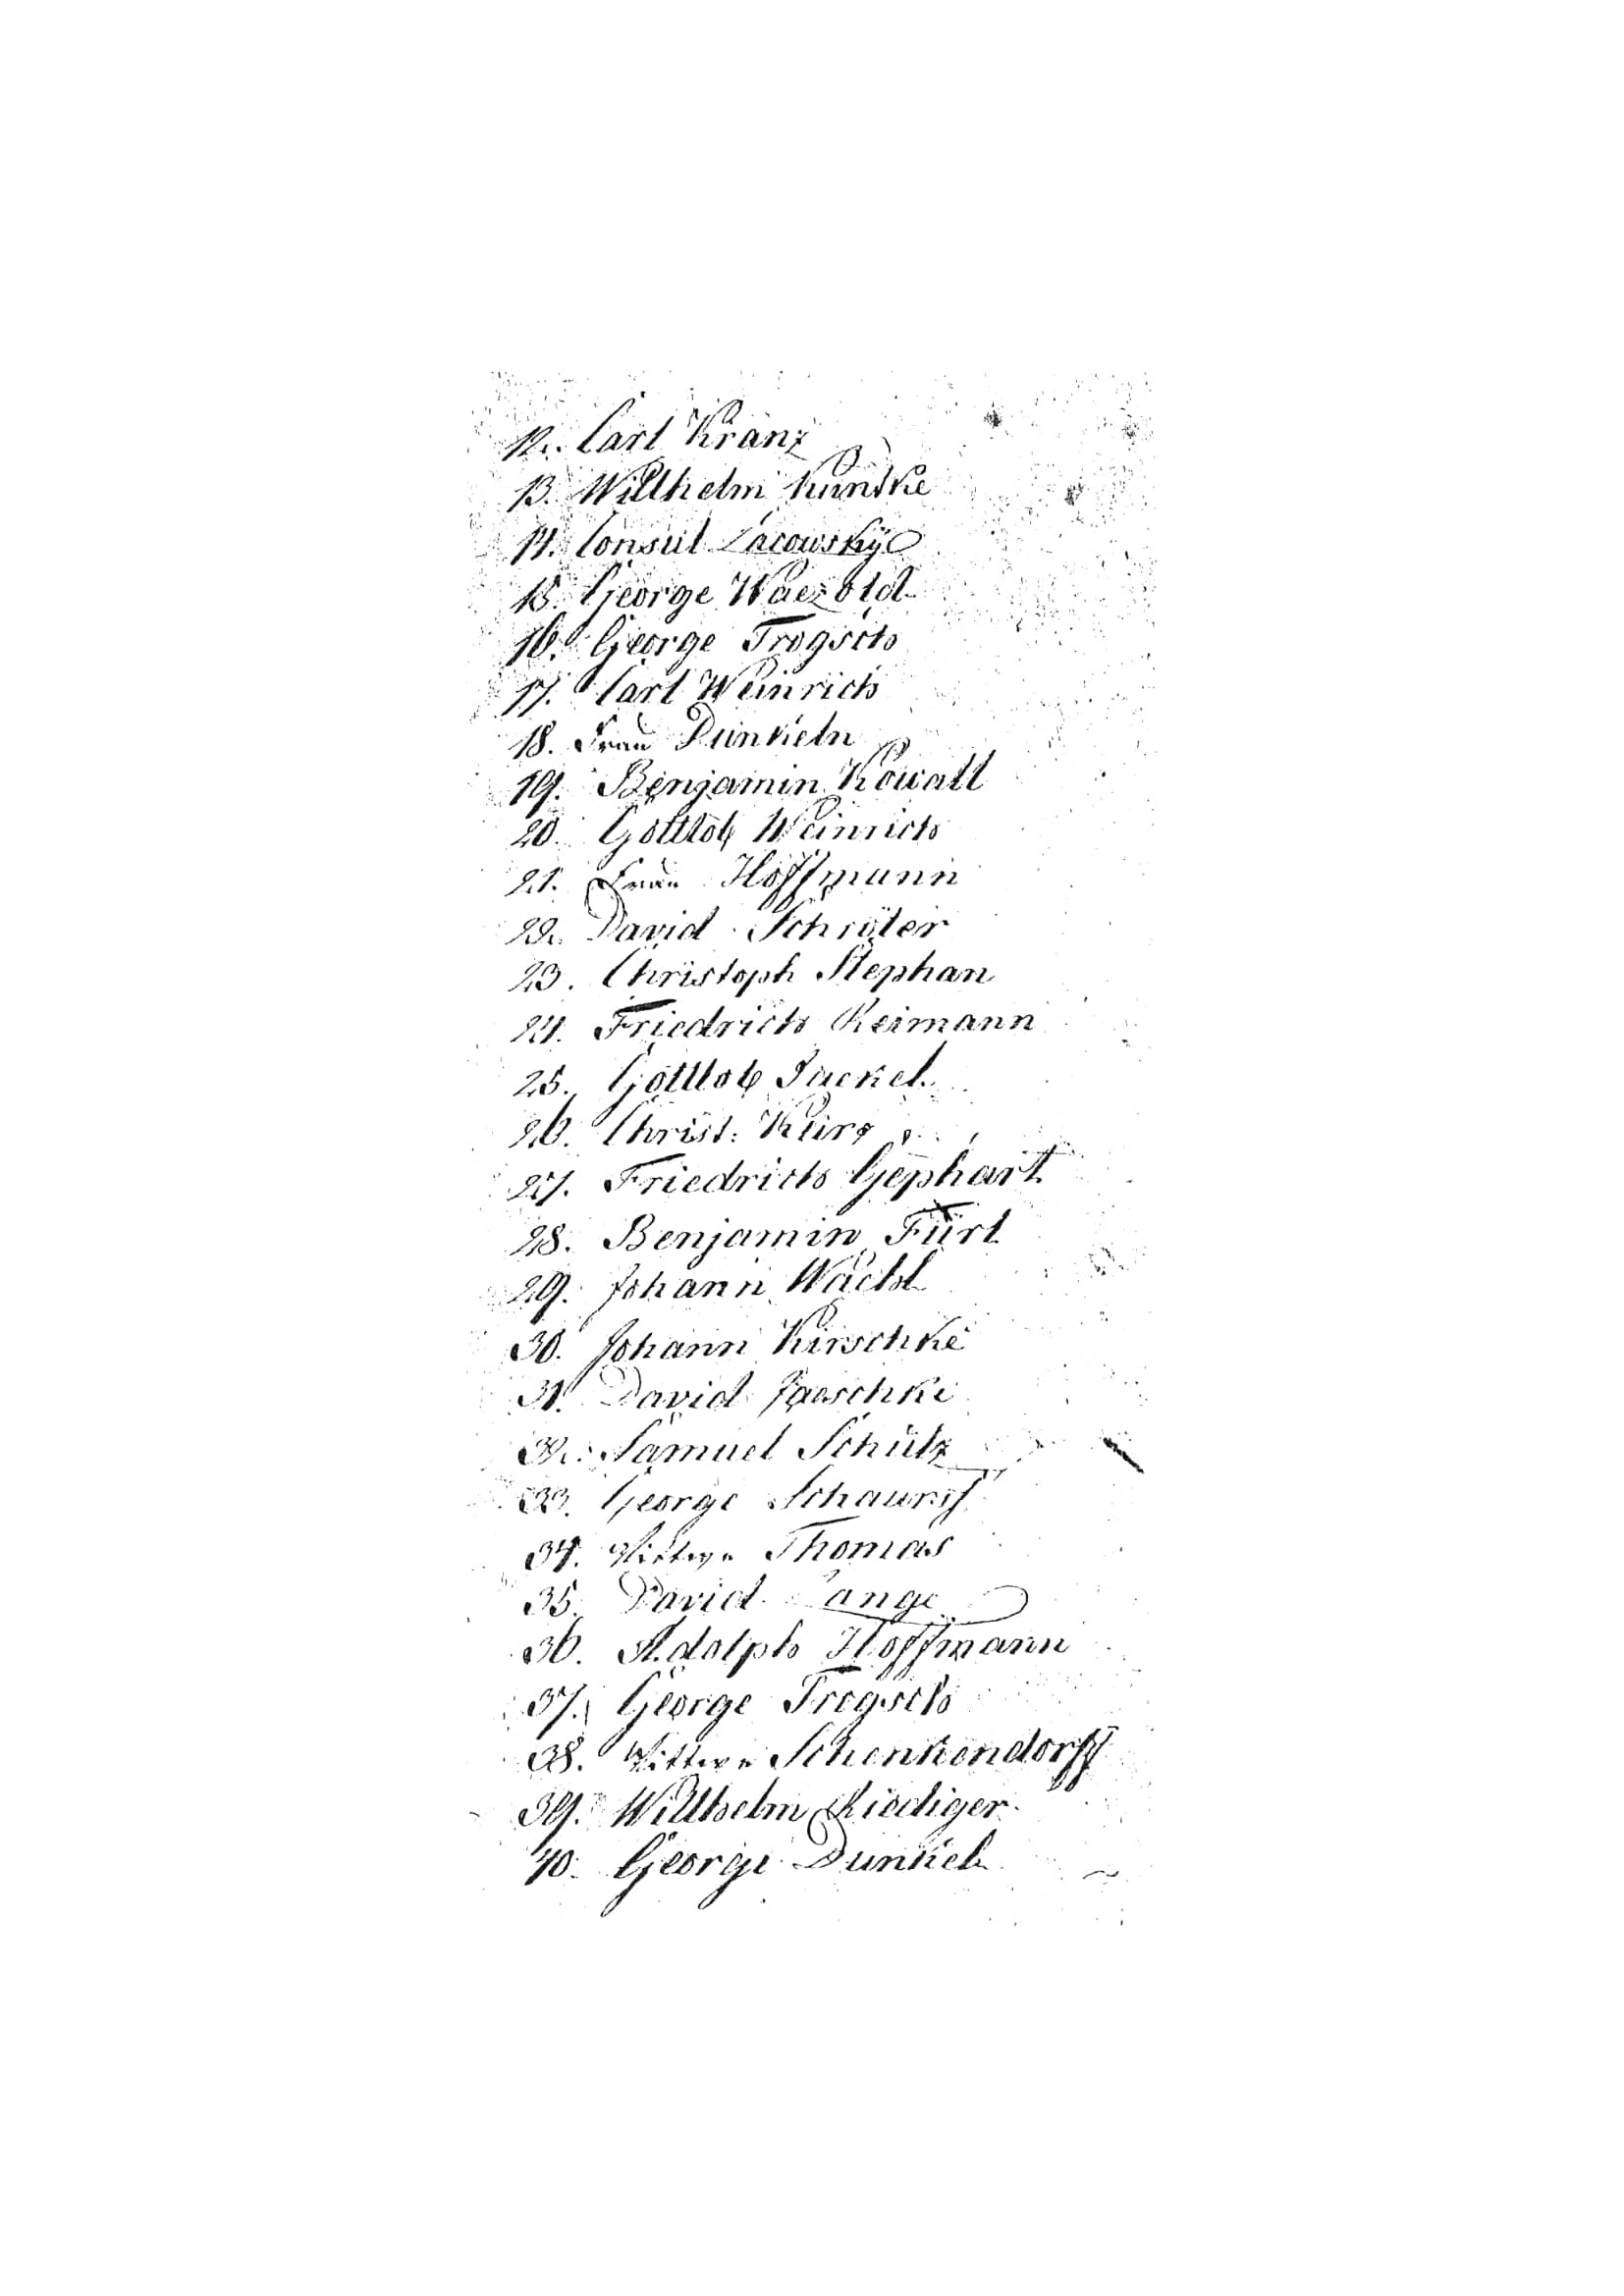 12. Carl Kranz
13. Willhelm Kuntke
14. Consul Lacowsky
15. George Waezold
16. George Trogsch
17. Carl Weinrich
18. Frau Dunkeln
19. Benjamin Kowall
20. Gottlob Weinrich
21. Frau Hoffmann
22. David Schröter
23. Christoph Stephan
24. Friedrich Reimann
25. Gottlob Jaekel
26. Christ: Kurz
27. Friedrich Gephart
28. Benjamin Fürl
29. Johann Wachl
30. Johann Kirschke
31. David Jaeschke
32. Samuel Schülz
33. George
34. Wittwe Thomas
35. David Lange
36. Adolph Hoffmann
37. George Trogsch
38. Wittwe Schenkendorff
39. Willhelm Riediger
40. George Dunkel